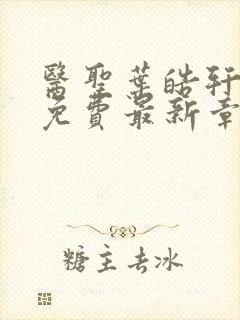 醫聖葉皓軒
免費最新章
糖主去冰